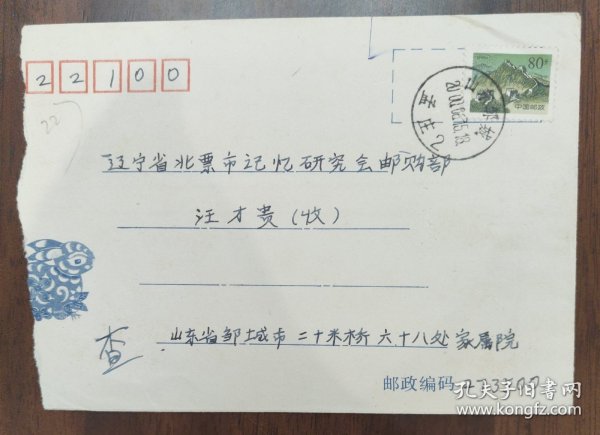 22100
80分
中国邮政
22
辽宁省北票市记忆研究会邮购部
汪才贵(收)
查
山东省邹城市二十米桥六十八处家属院
邮政编码 273500
孔夫子旧书网
www.kongfz.com